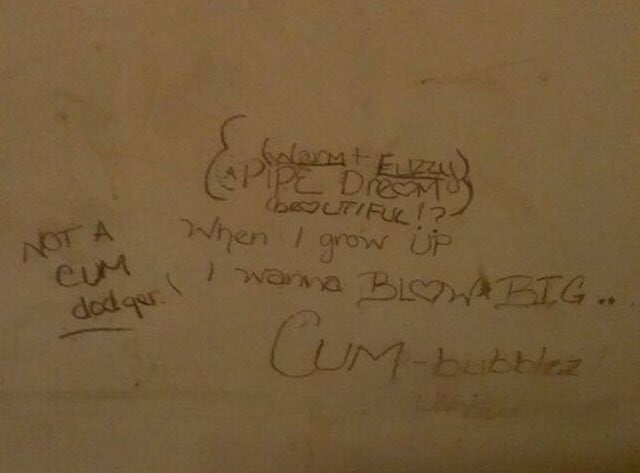 {(Warm + Fuzzy)
^PIPE DreAM^}
(beAUTIFUL!?)
When I grow UP
I wanna BLOW BIG...
CUM-bubblez
NOT A
CUM
dodger.